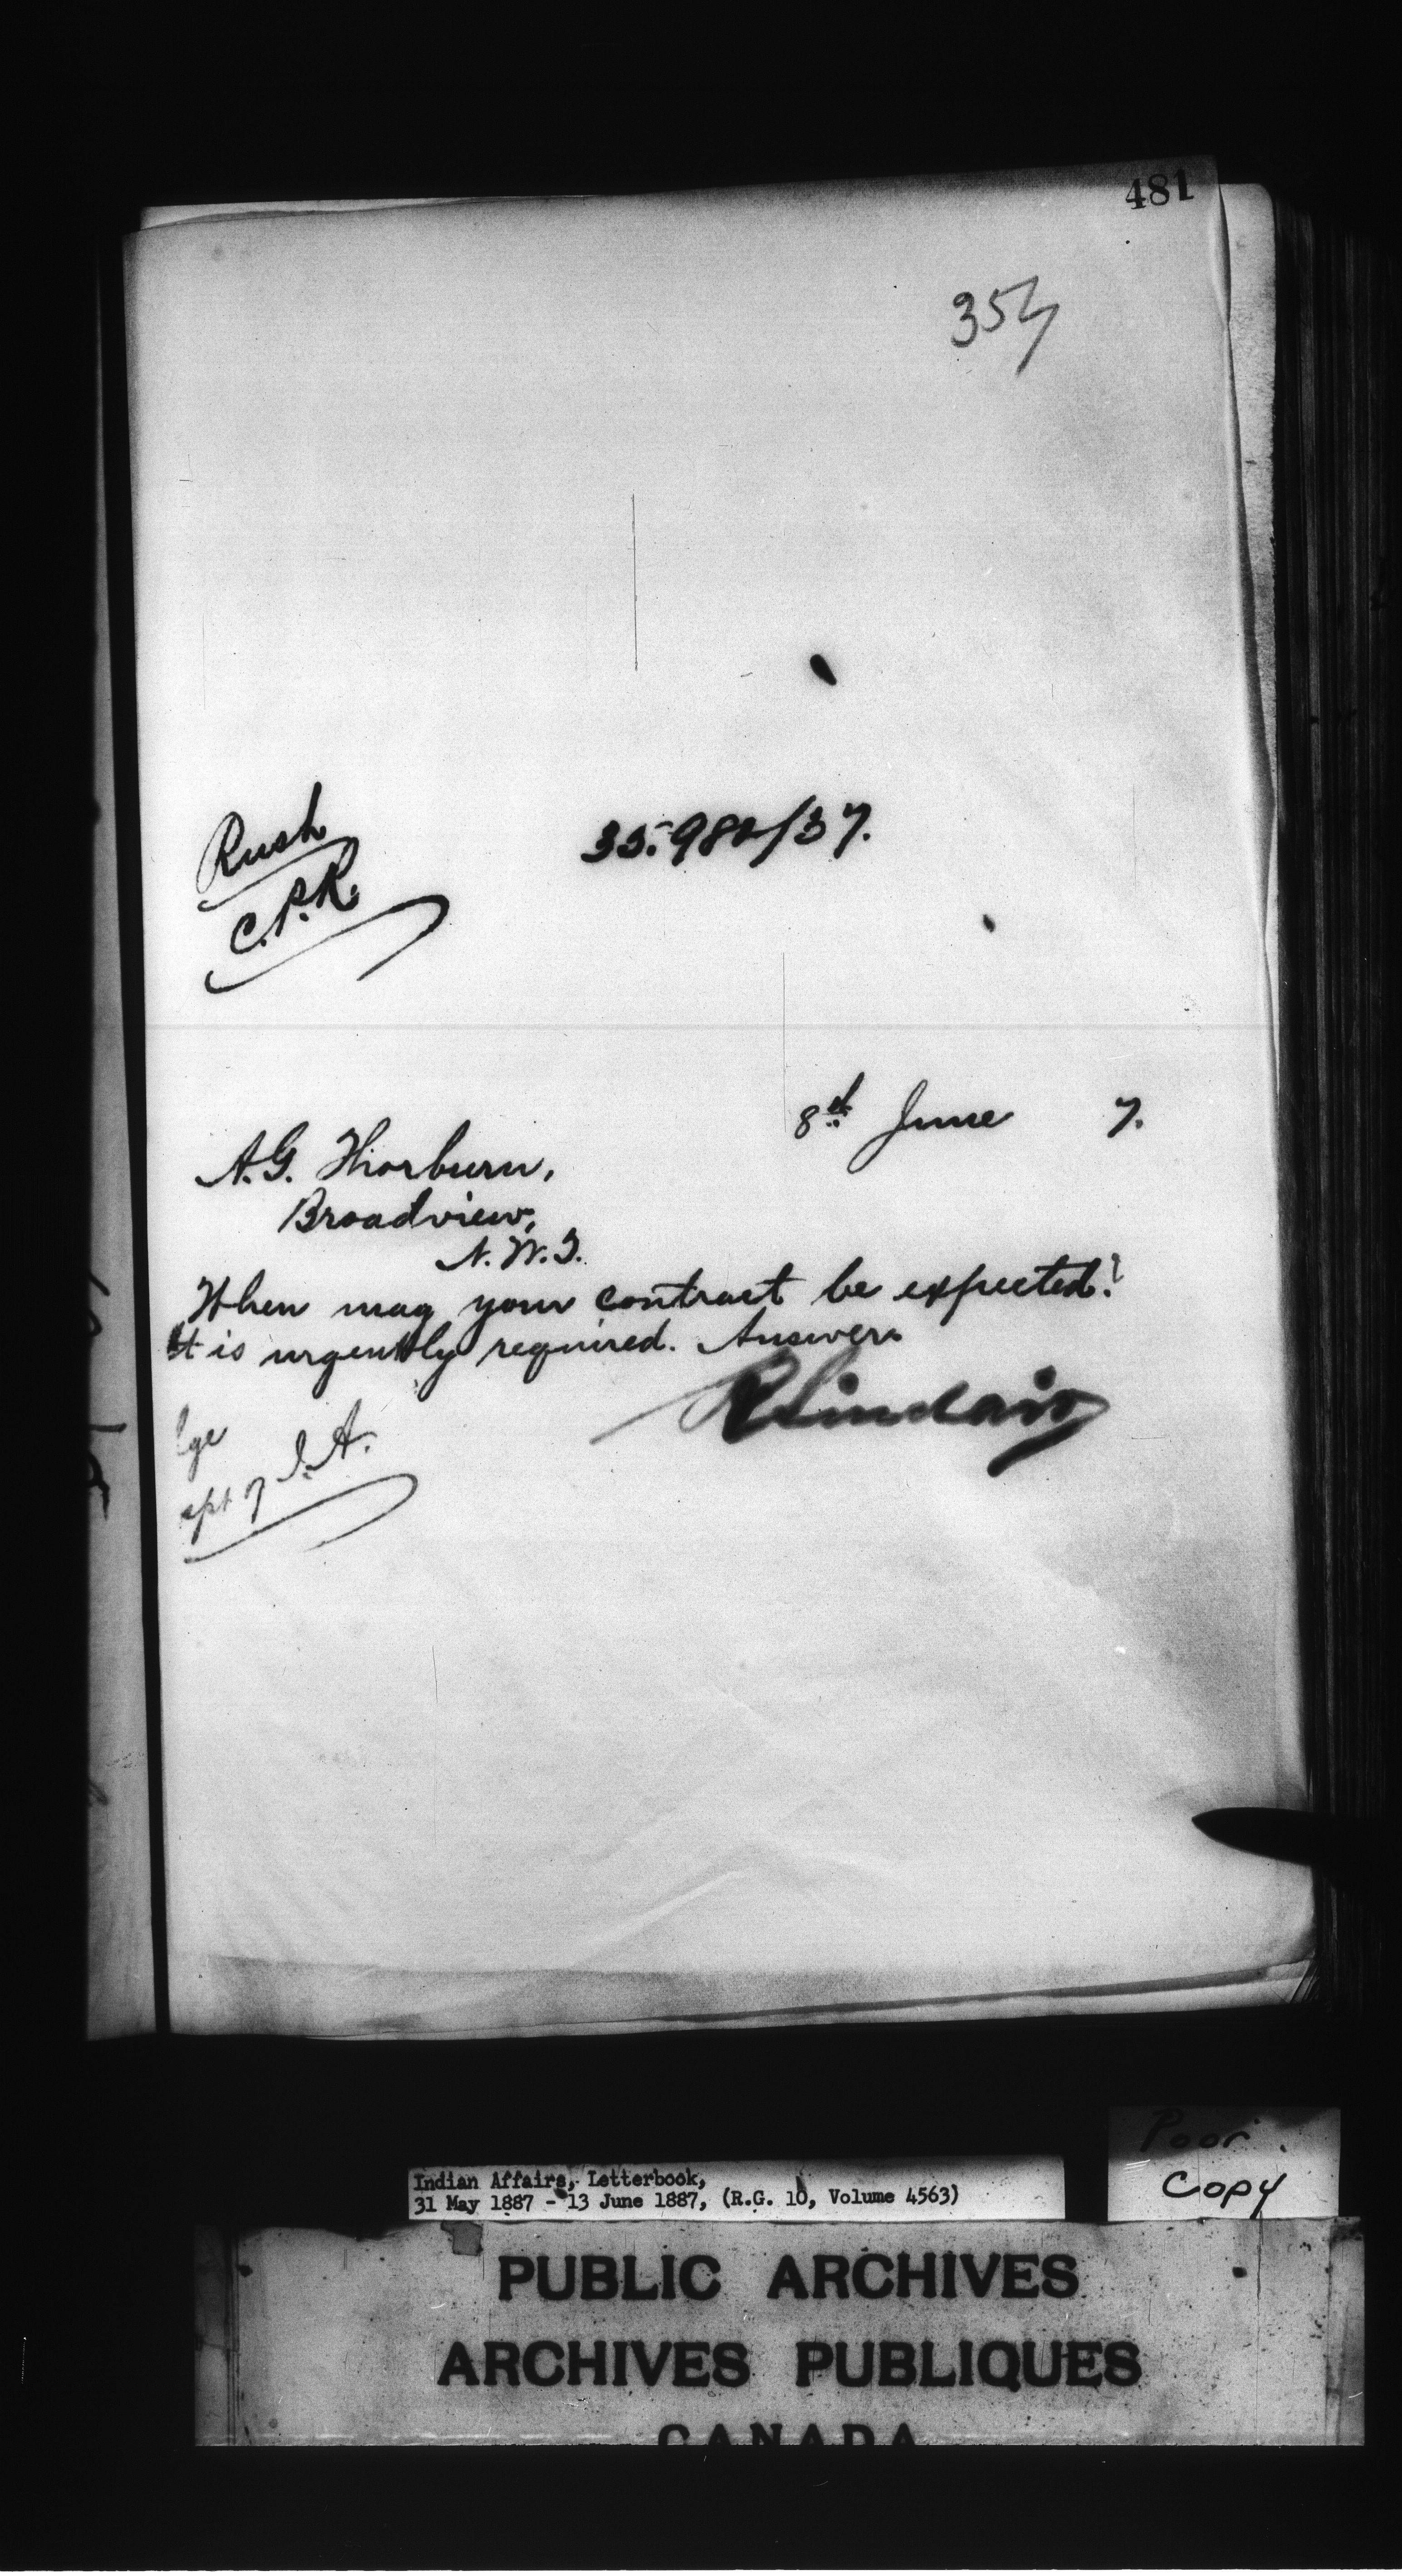 481
357
Rush
C.P.R.
35.980/37.
8th June 7.
A.G. Thorburn,
Broadview,
N.W.T.
When may your contract be expected?
It is urgently required. Answer.
R Sinclair
ge
ept of I.A.
Poor
Copy
Indian Affairs, Letterbook,
31 May 1887 - 13 June 1887, (R.G. 10, Volume 4563)
PUBLIC ARCHIVES
ARCHIVES PUBLIQUES
CANADA